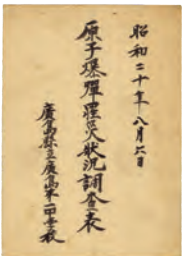 昭和二十年八月六日
原子爆彈罹災狀況調査表
廣島縣立廣島第一中学校